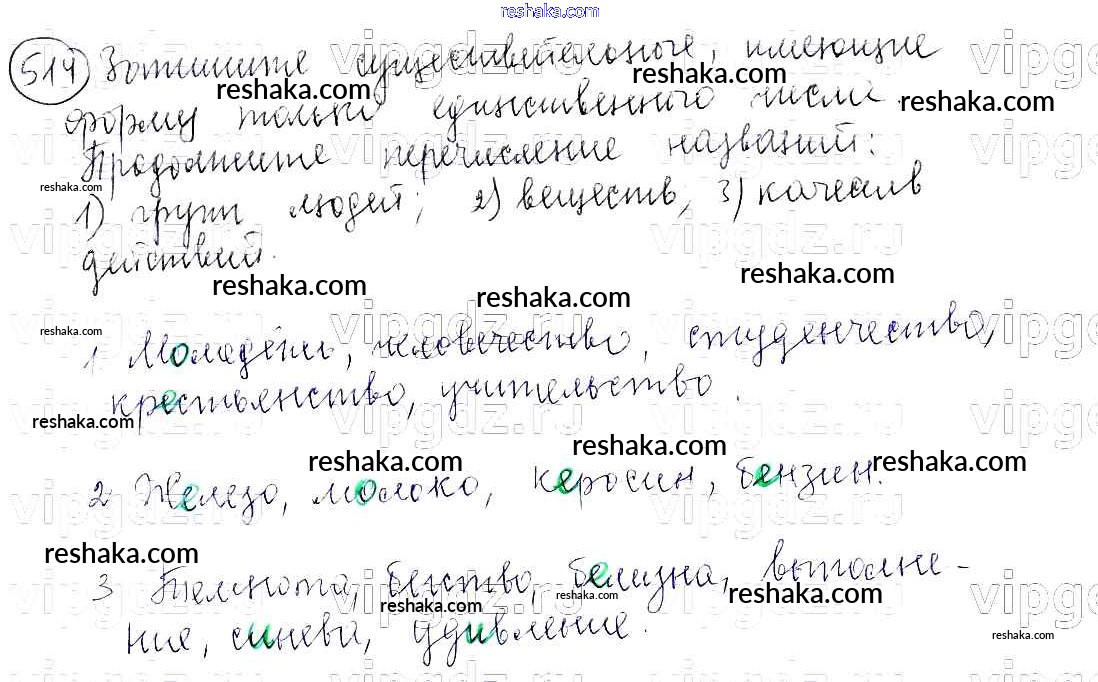 reshaka.com
514 Запишите существительные, имеющие
reshaka.com reshaka.com
форму только единственного числа.
reshaka.com reshaka.com
Продолжите перечисление названий:
reshaka.com
1) групп людей; 2) веществ; 3) качеств
действий.
reshaka.com reshaka.com reshaka.com
reshaka.com
1. Молодёжь, человечество, студенчество,
крестьянство, учительство.
reshaka.com
reshaka.com reshaka.com reshaka.com
2 Железо, молоко, керосин, бензин.
reshaka.com
3 Темнота, бегство, белизна, выполне-
reshaka.com reshaka.com
ние, синева, удивление.
reshaka.com
vipgdz.ru